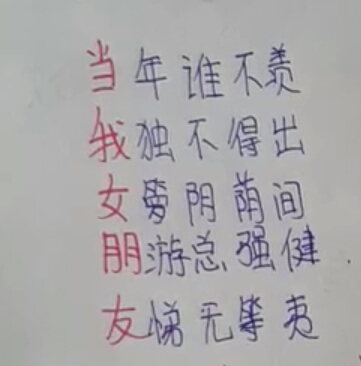 当年谁不羡
我独不得出
女阴荫间
朋游总强健
友悌无等夷